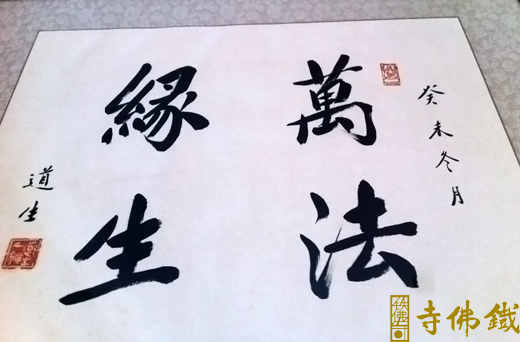 癸未冬月
萬法
緣生
道生
鐵佛寺